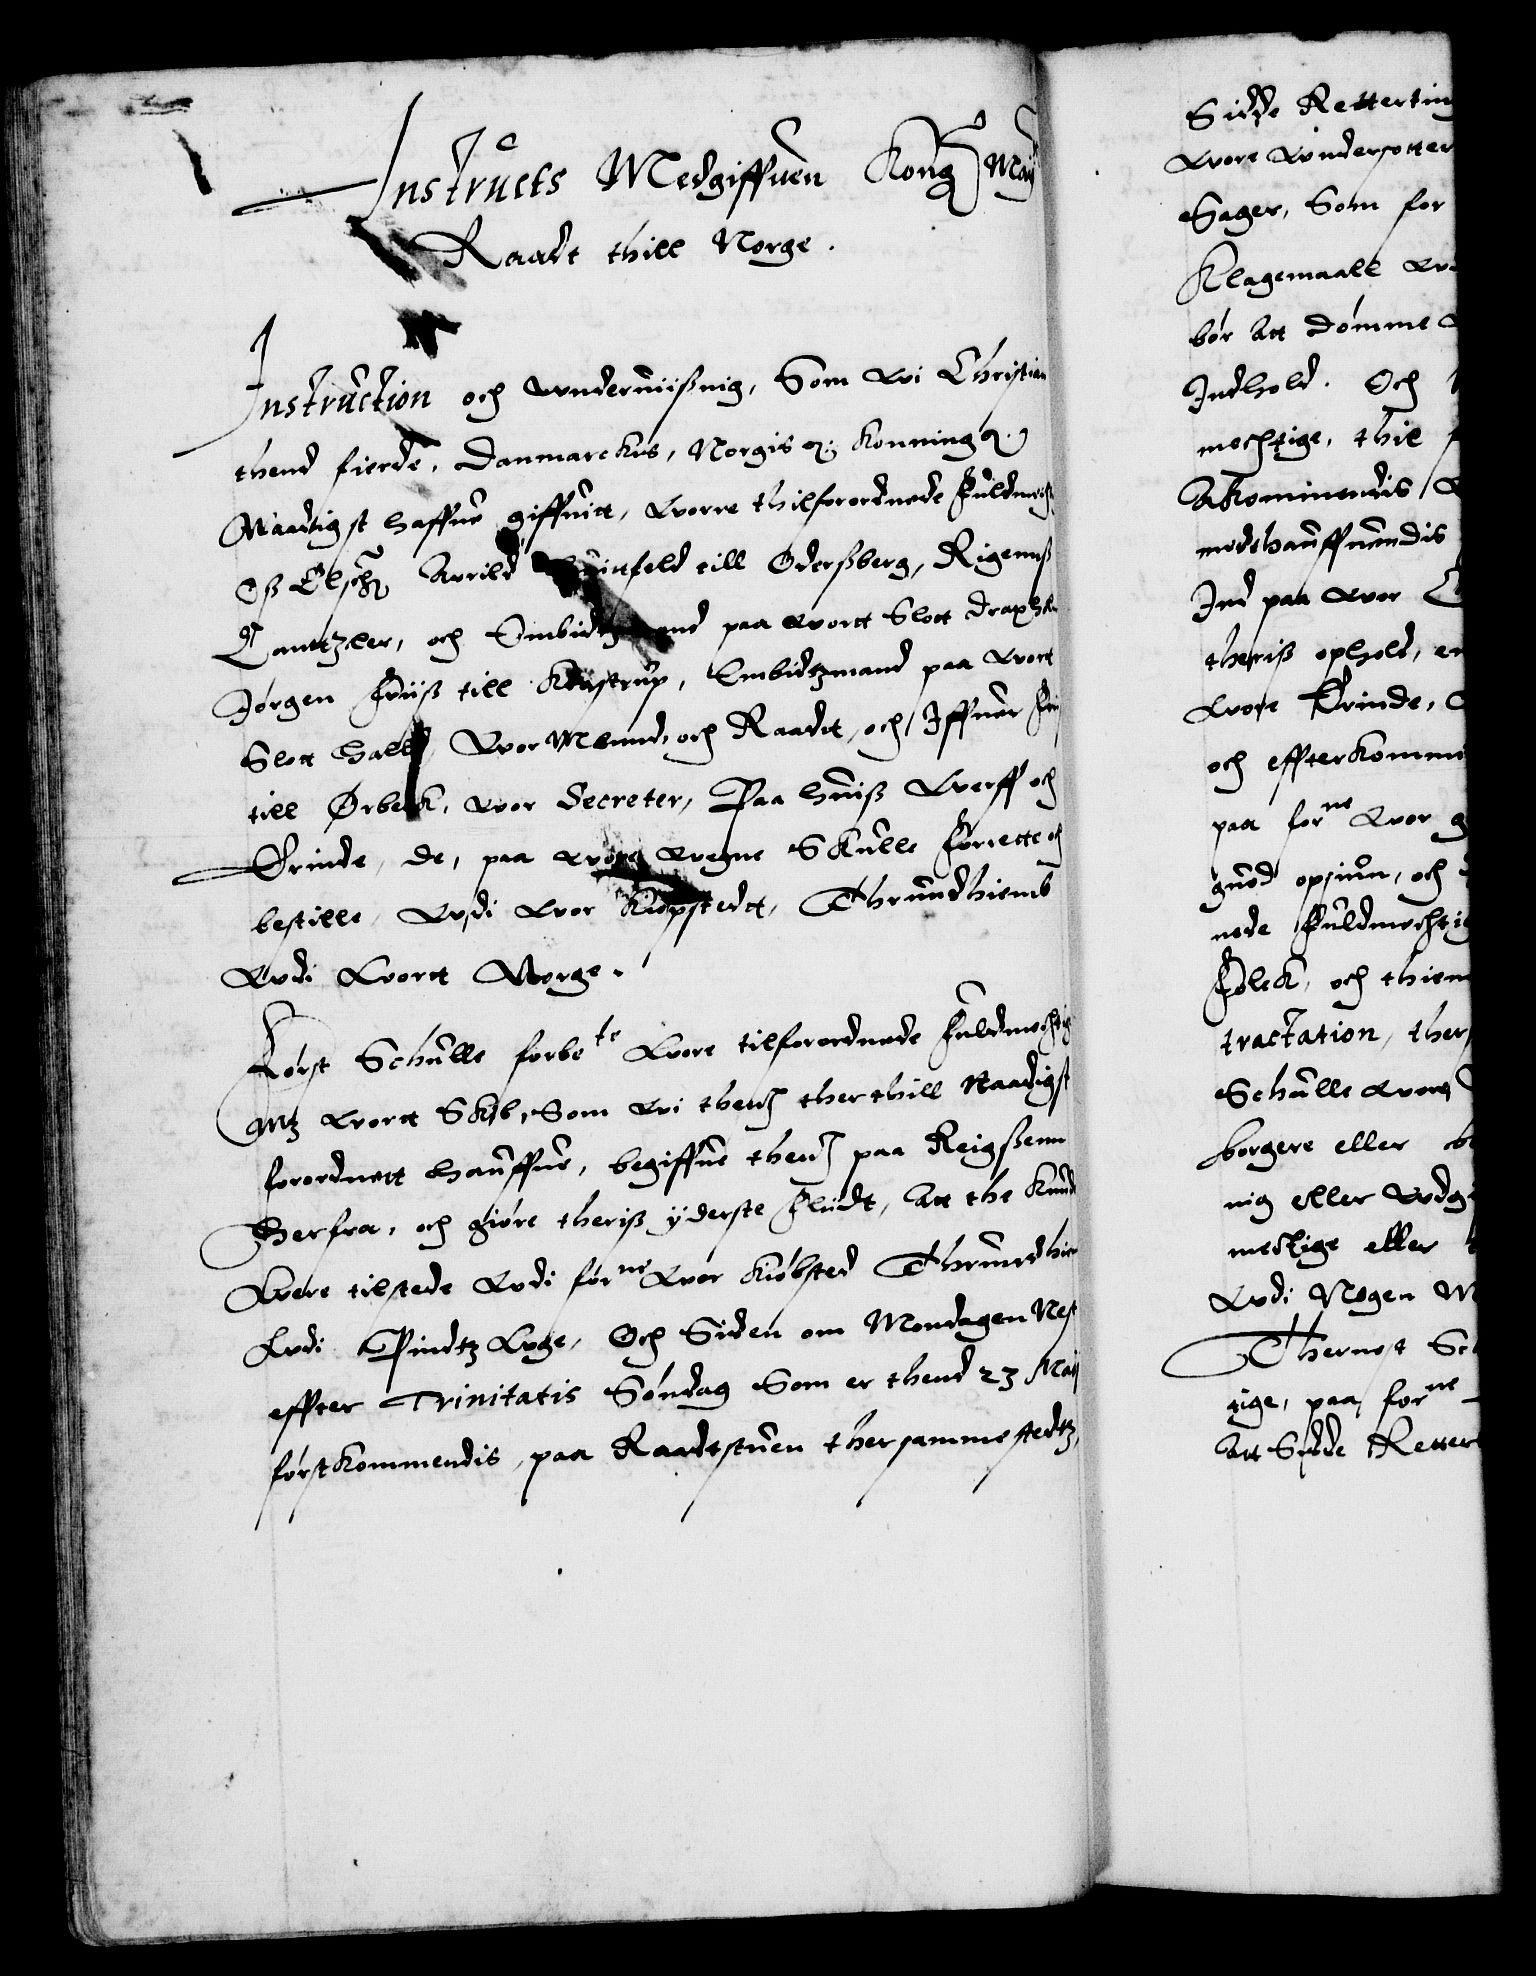 Instructs Medgiffuen Kong May
Raadt thill Norge.
Instruction och wnderuiißnig, Som wi Christian
thend fierde, Danmarckis, Norgis &. Konning &.
Naadigst haffue giffuitt, worre thilforordnede Fuldmecht
Oß Elsche Arrild Huitfeld till Oderßberg, Rigenuß
Cantzler, och Embidtzmand paa wortt Slott Draxhol
Jørgen Friiß till Krastrup, Embidtzmand paa wort
Slott Hald, wor Mannd, och Raadtt, och Iffuer Fri
till Ørbeck, wor Secreter, Paa huiß werff och
Erinde, de, paa wore wegne Skulle forrette och
bestille, wdi wor Kiøpstedt, Thrundhiemb
wdi wortt Norge.
Først Schulle forbete wore tilforordnede Fuldmechtig
Mz wortt Skib, Som wi thenn ther thill Naadigst
forordnett hauffue, begiffue thenn paa Reigßenn
Herfra, och giøre theriß ÿderste Fliidt, att the kunde
were tilstede wdi forne wor Kiøbsted Thrundhiem
wdi Pindtz wge, Och Siden om Mondagen Nest
effter Trinitatis Søndag Som er thend 23 Maij
førstkommendis, paa Raadtstuen thersammestedtz,
Sidde Retterting
wore wndersotter
Sager, Som for
Klagemaall
bør att Dømme
Indhold. Och
mechtige, thil
Akommendis
medhauffuendis
Ind paa wor
theriß ophold, en
wore Erinde,
och effterkomme
paa forne wor
gned opsiun, och
nede Fuldmechtig
Folck, och thien
tractation, ther
Schulle wore
borgere eller
nig eller wdg
mellige eller
wdi Nogen
Thernest Sch
tige, paa forne
att Sidde Retter